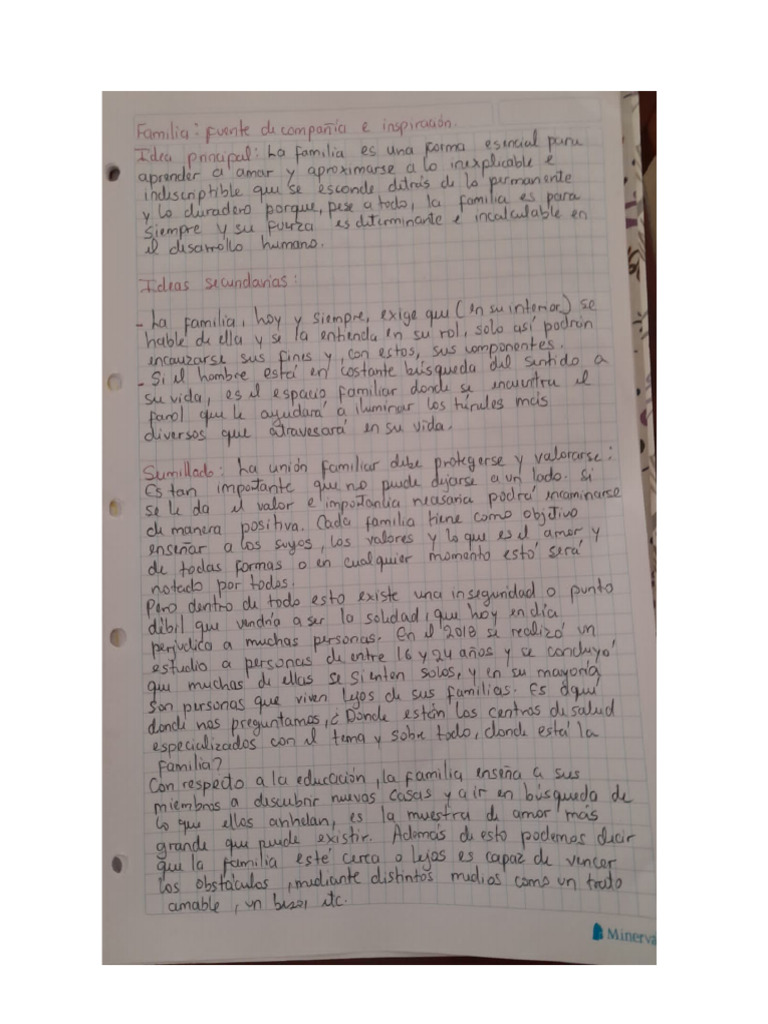 Familia: fuente de compañía e inspiración.
Idea principal: La familia es una forma esencial para
aprender a amar y aproximarse a lo inexplicable e
indiscriptible que se esconde ditrás de lo permanente
y lo duradero porque, pese a todo, la familia es para
siempre y su fuerza es determinante e incalculable en
el desarrollo humano.
Ideas secundarias:
- La familia, hoy y siempre, exige que (en su interior) se
hable de ella y se la entienda en su rol, solo así podrán
encauzarse sus fines y, con estos, sus componentes.
- Si el hombre está en costante búsqueda del sentido a
su vida, es el espacio familiar donde se encuentra el
farol que le ayudará a iluminar los túneles más
diversos que atravesará en su vida.
Sumillado: La unión familiar debe protegerse y valorarse:
Es tan importante que no puede dejarse a un lado. Si
se le da el valor e importancia necesaria podrá encaminarse
de manera positiva. Cada familia tiene como objetivo
enseñar a los suyos, los valores y lo que es el amor y
de todas formas o en cualquier momento estó será
notado por todos.
Pero dentro de todo esto existe una inseguridad o punto
débil que vendría a ser la soledad, que hoy en día
perjudica a muchas personas. En el 2018 se realizó un
estudio a personas de entre 16 y 24 años y se concluyó
que muchas de ellas se sienten solos, y en su mayoría
son personas que viven lejos de sus familias. Es aquí
donde nos preguntamos, ¿Dónde están los centros de salud
especializados con el tema y sobre todo, donde está la
familia?
Con respecto a la educación, la familia enseña a sus
miembros a descubrir nuevas cosas y a ir en búsqueda de
lo que ellos anhelan, es la muestra de amor más
grande que puede existir. Además de esto podemos decir
que la familia esté cerca o lejos es capaz de vencer
los obstáculos, mediante distintos medios como un trato
amable, un beso, etc.
Minerva